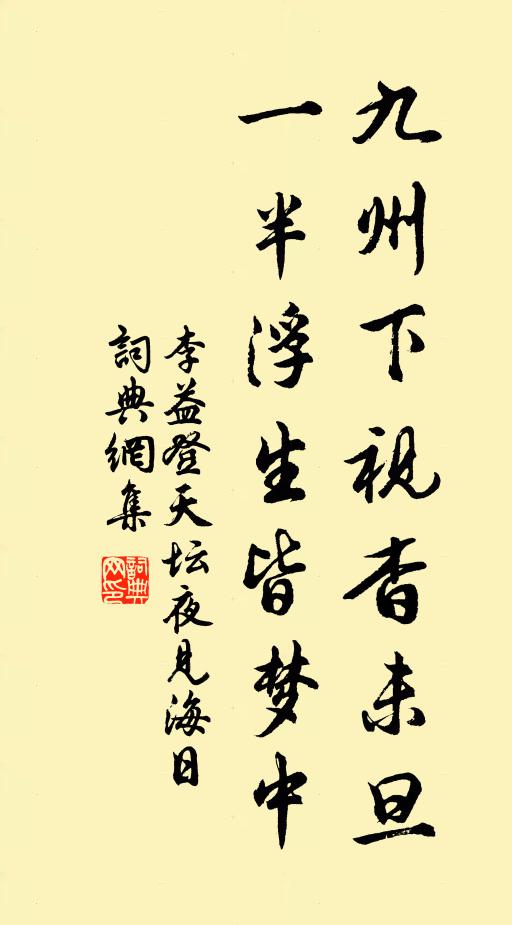 九州下视杳未旦
一半浮生皆梦中
李益登天坛夜见海日
詞典網集
詞典網印